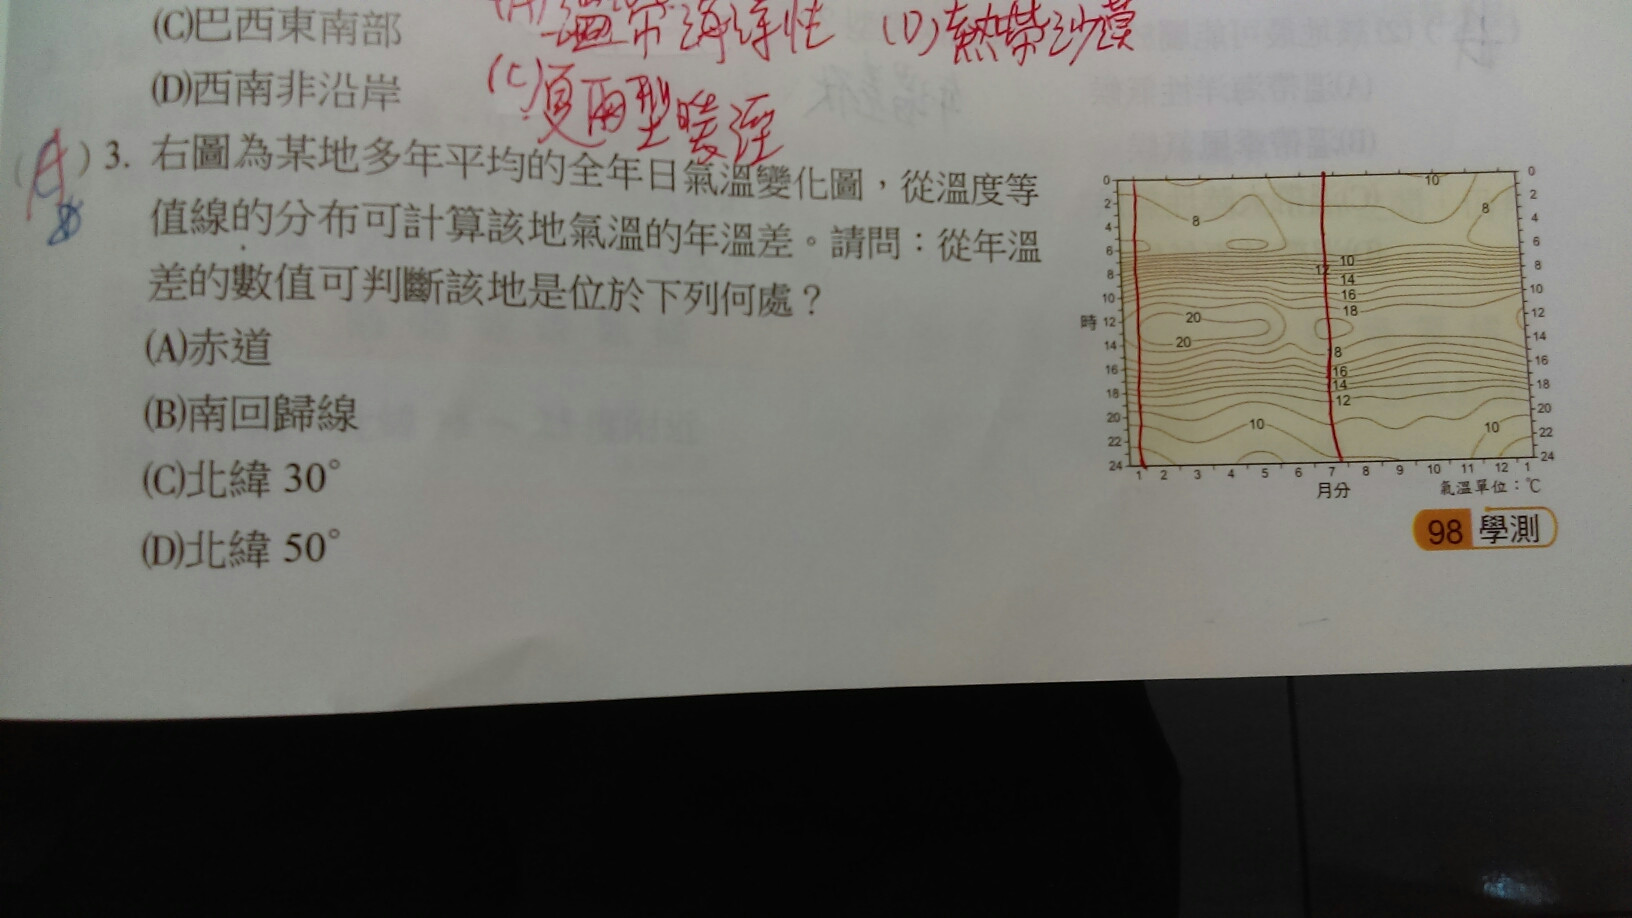 (C)巴西東南部
溫帶海洋性 (D)熱帶沙漠
(D)西南非沿岸
(C)夏雨型暖溼
(A) 3. 右圖為某地多年平均的全年日氣溫變化圖,從溫度等
值線的分布可計算該地氣溫的年溫差。請問:從年溫
差的數值可判斷該地是位於下列何處?
(A)赤道
(B)南回歸線
(C)北緯 30°
(D)北緯 50°
0 10 0
2 8 8 2
4 4
6 10 6
8 12 14 8
10 16 10
時 12 20 18 12
14 20 18 14
16 16 16
18 14 12 18
20 10 10 20
22 22
24 24
1 2 3 4 5 6 7 8 9 10 11 12 1
月分 氣溫單位:℃
98 學測